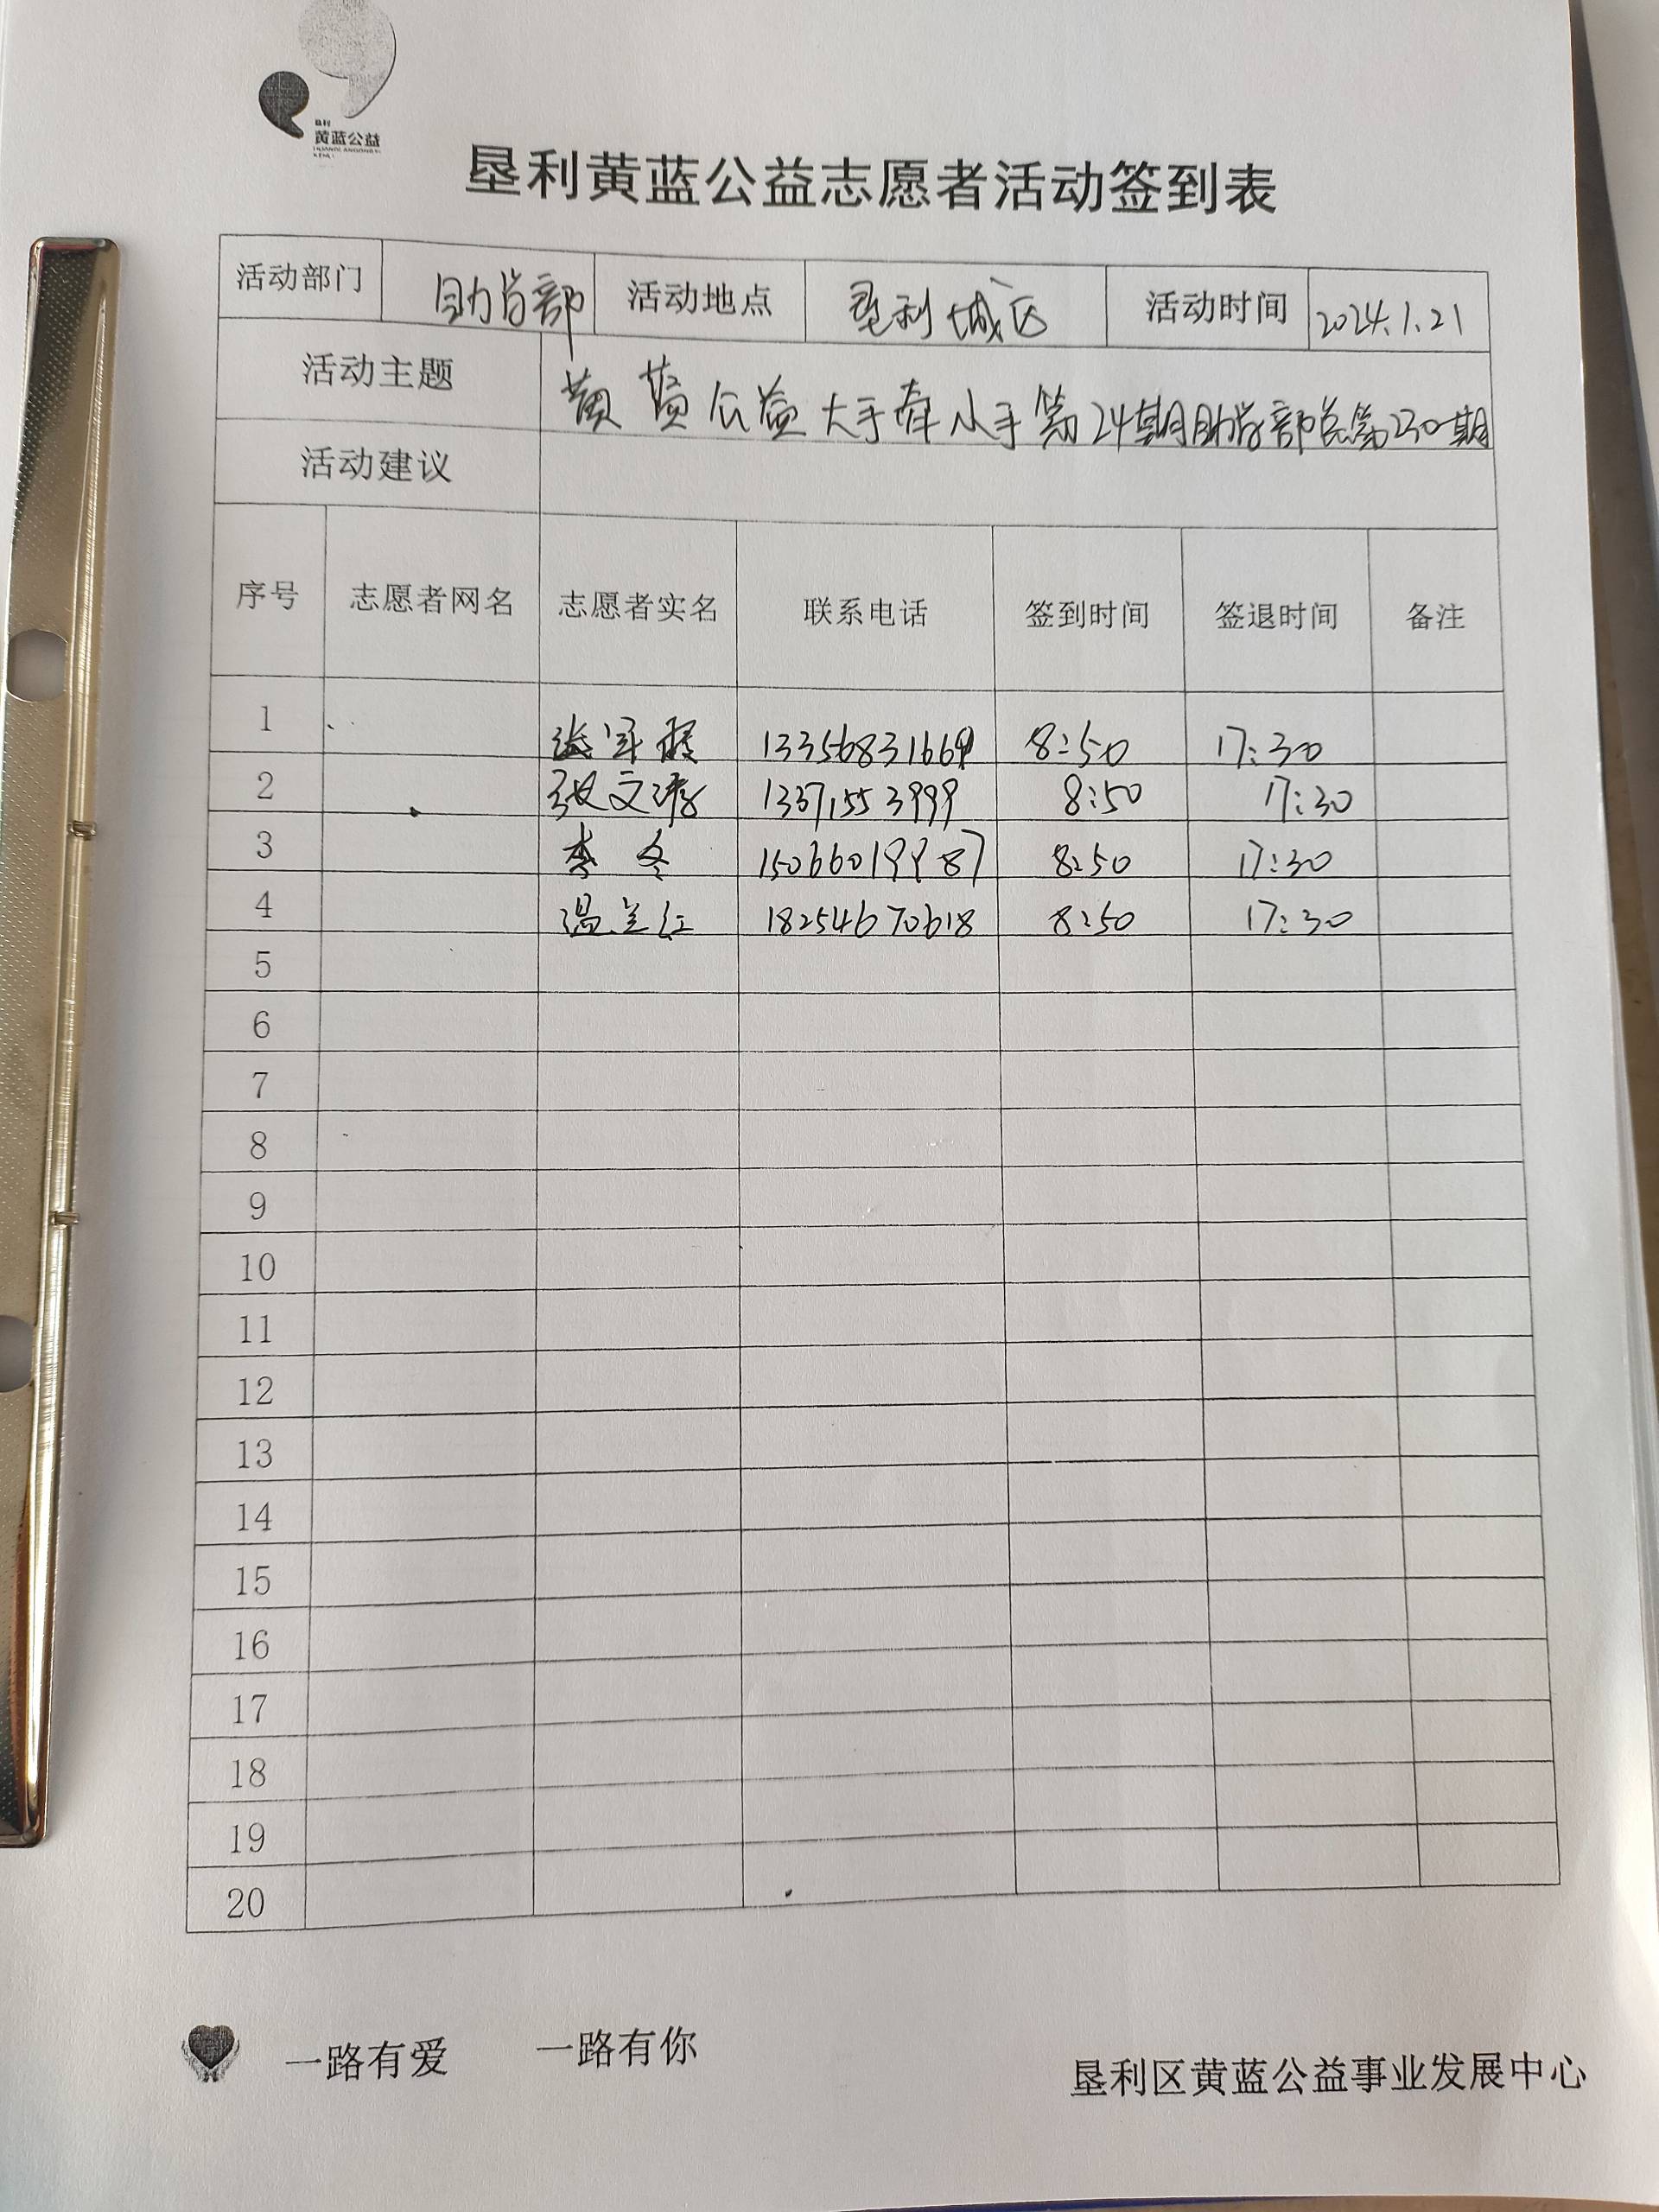 垦利
黄蓝公益
垦利黄蓝公益志愿者活动签到表
活动部门 助学部 活动地点 垦利城区 活动时间 2024.1.21
活动主题 黄蓝公益大手牵小手第24期助学部总第230期
活动建议
序号 志愿者网名 志愿者实名 联系电话 签到时间 签退时间 备注
1 13356831669 8:50 17:30
2 张文 13371553999 8:50 17:30
3 李冬 15066019987 8:50 17:30
4 温兰红 18254670618 8:50 17:30
5
6
7
8
9
10
11
12
13
14
15
16
17
18
19
20
一路有爱 一路有你
垦利区黄蓝公益事业发展中心